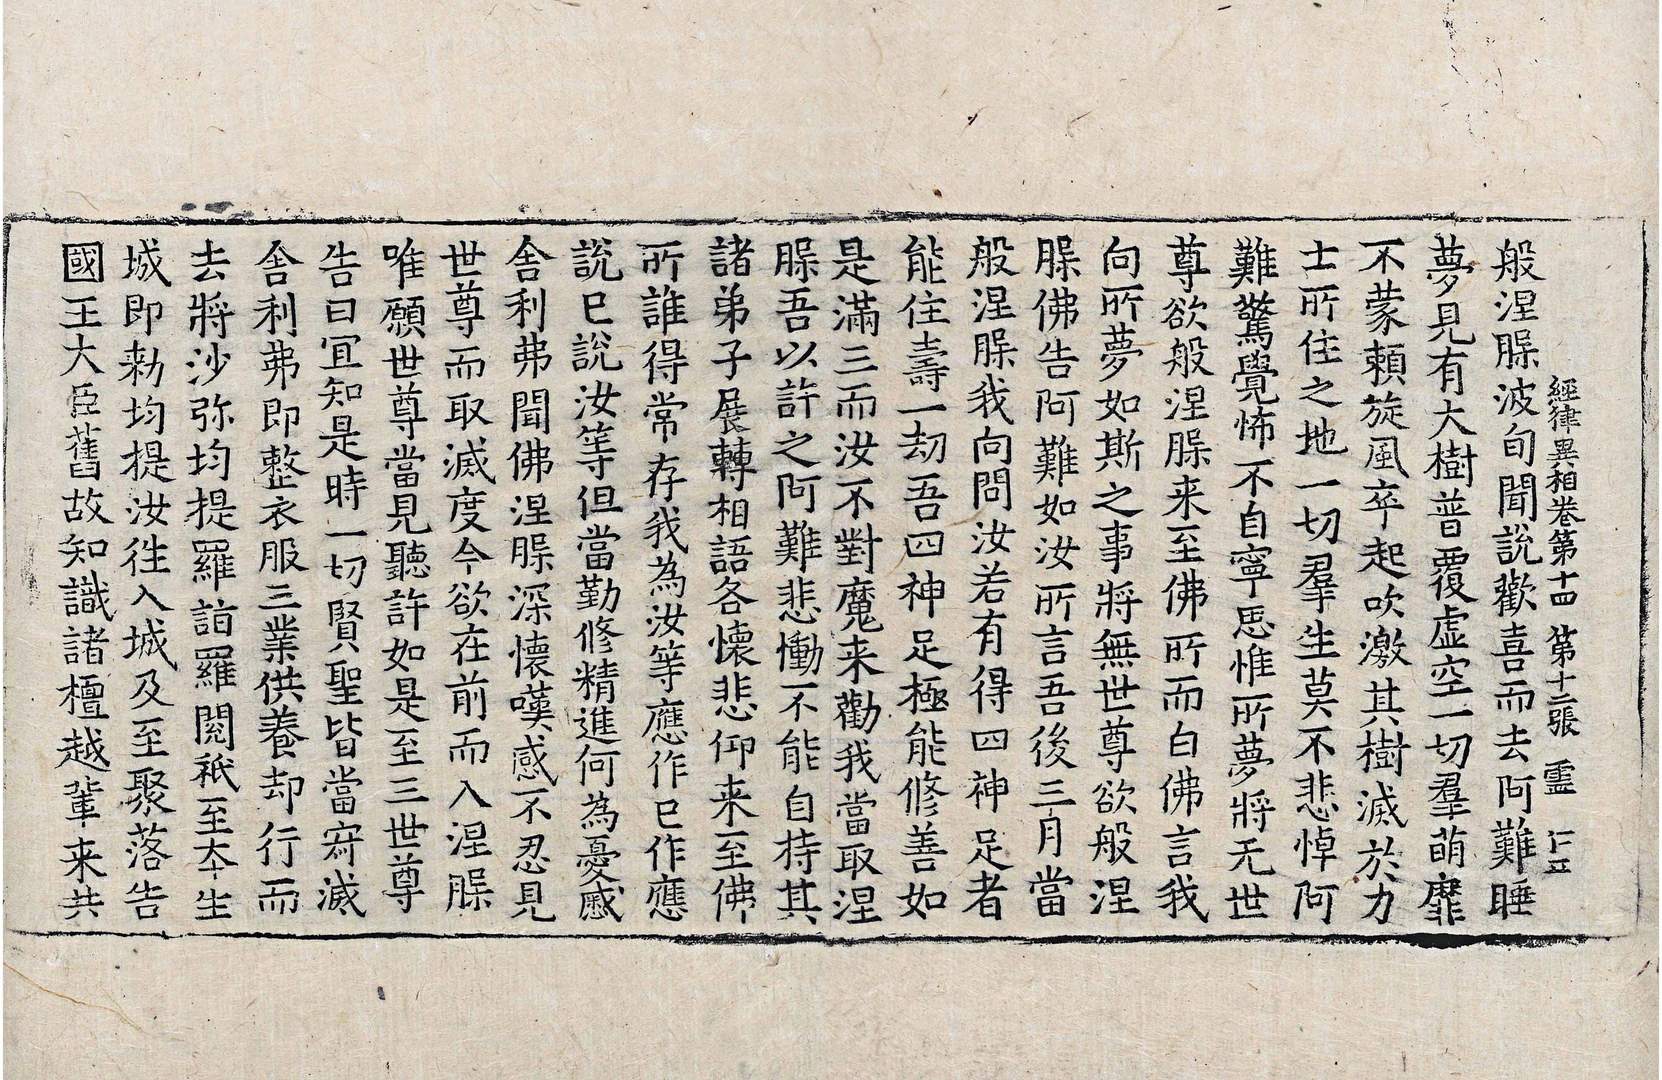 經律異相卷第十四 第十二張 靈
般涅槃波旬聞說歡喜而去阿難睡
夢見有大樹普覆虛空一切羣萌靡
不蒙賴旋風卒起吹激其樹滅於力
士所住之地一切羣生莫不悲悼阿
難驚覺怖不自寧思惟所夢將无世
尊欲般涅槃来至佛所而白佛言我
向所夢如斯之事將無世尊欲般涅
槃佛告阿難如汝所言吾後三月當
般涅槃我向問汝若有得四神足者
能住壽一劫吾四神足極能修善如
是滿三而汝不對魔来勸我當取涅
槃吾以許之阿難悲慟不能自持其
諸弟子展轉相語各懷悲仰来至佛
所誰得常存我為汝等應作已作應
說已說汝等但當勤修精進何為憂慼
舍利弗聞佛涅槃深懷嘆感不忍見
世尊而取滅度今欲在前而入涅槃
唯願世尊當見聽許如是至三世尊
告曰宜知是時一切賢聖皆當寂滅
舍利弗即整衣服三業供養却行而
去將沙弥均提羅詣羅閱祇至本生
城即勑均提汝往入城及至聚落告
國王大臣舊故知識諸檀越輩来共